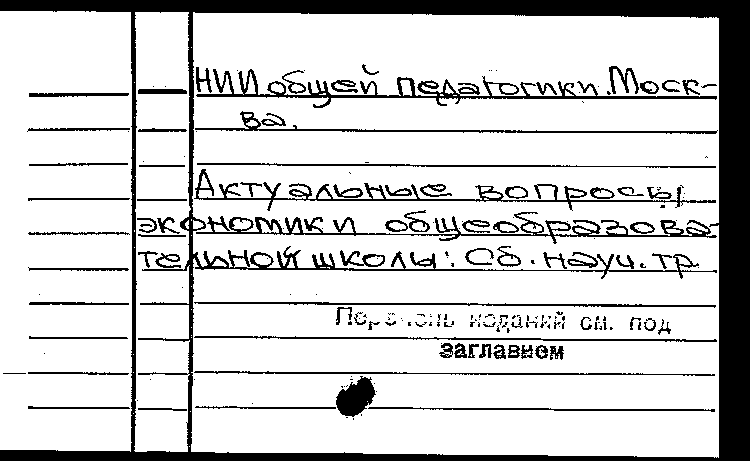 НИИ общей педагогики. Моск-
ва.
Актуальные вопросы
экономики общеобразова-
тельной школы: Сб. науч. тр
Перечень изданий см. под
заглавием